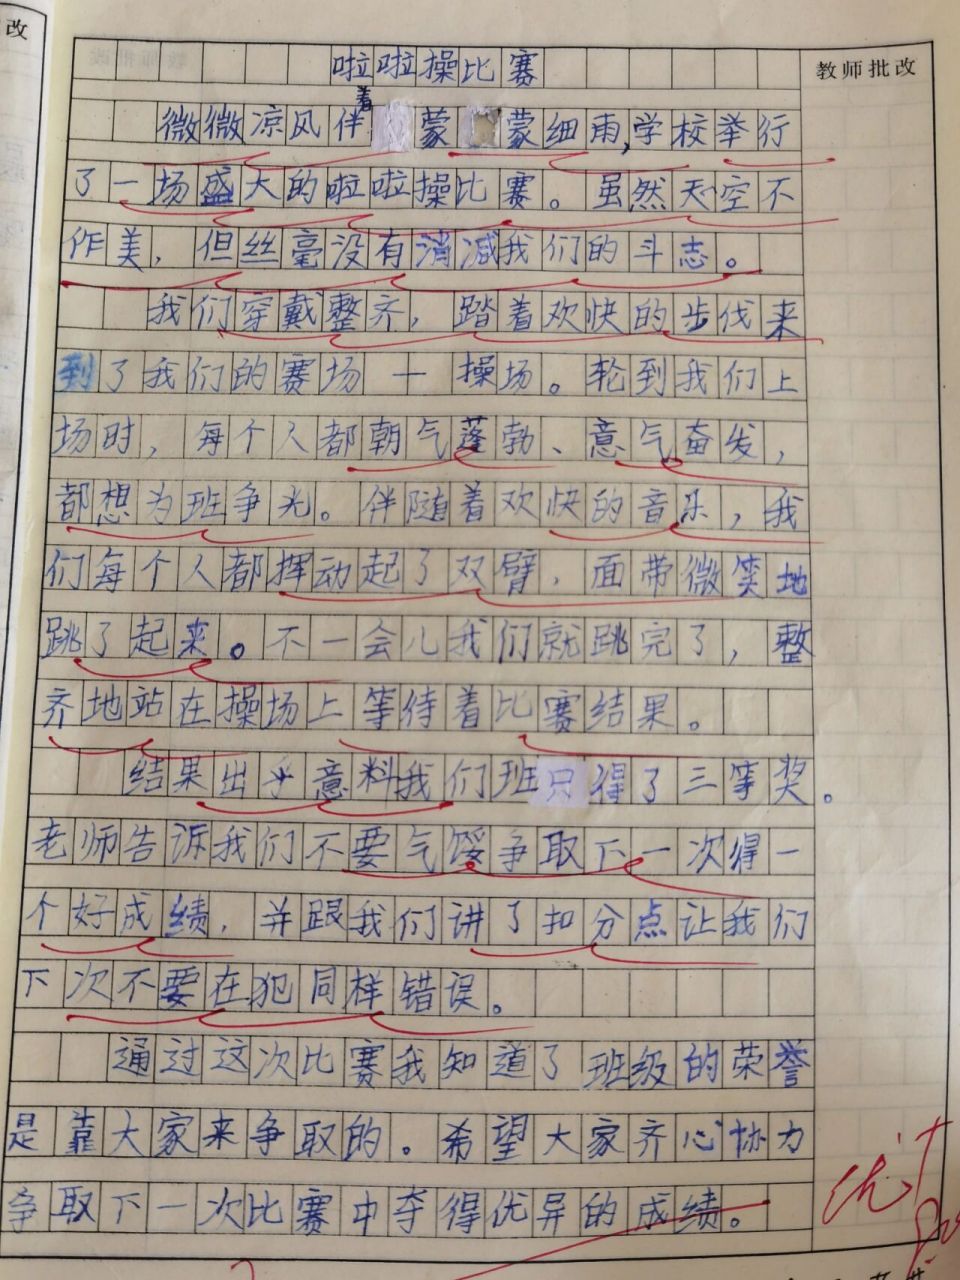 改
教师批改
啦啦操比赛
微微凉风伴着蒙蒙细雨,学校举行
了一场盛大的啦啦操比赛。虽然天空不
作美，但丝毫没有消减我们的斗志。
我们穿戴整齐，踏着欢快的步伐来
到了我们的赛场一操场。轮到我们上
场时，每个人都朝气蓬勃、意气奋发，
都想为班争光。伴随着欢快的音乐，我
们每个人都挥动起了双臂，面带微笑地
跳了起来。不一会儿我们就跳完了，整
齐地站在操场上等待着比赛结果。
结果出乎意料我们班只得了三等奖。
老师告诉我们不要气馁争取下一次得一
个好成绩，并跟我们讲了扣分点让我们
下次不要在犯同样错误。
通过这次比赛我知道了班级的荣誉
是靠大家来争取的。希望大家齐心协力
争取下一次比赛中夺得优异的成绩。
优